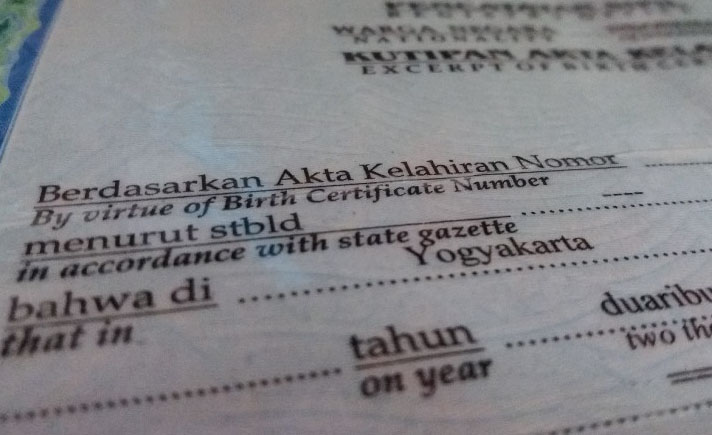 WARGA NEGARA
KUTIPAN AKTA KELA
EXCERPT OF BIRTH CER
Berdasarkan Akta Kelahiran Nomor
By virtue of Birth Certificate Number
menurut stbld ----
in accordance with state gazette
bahwa di Yogyakarta
that in
tahun duaribu
on year two th